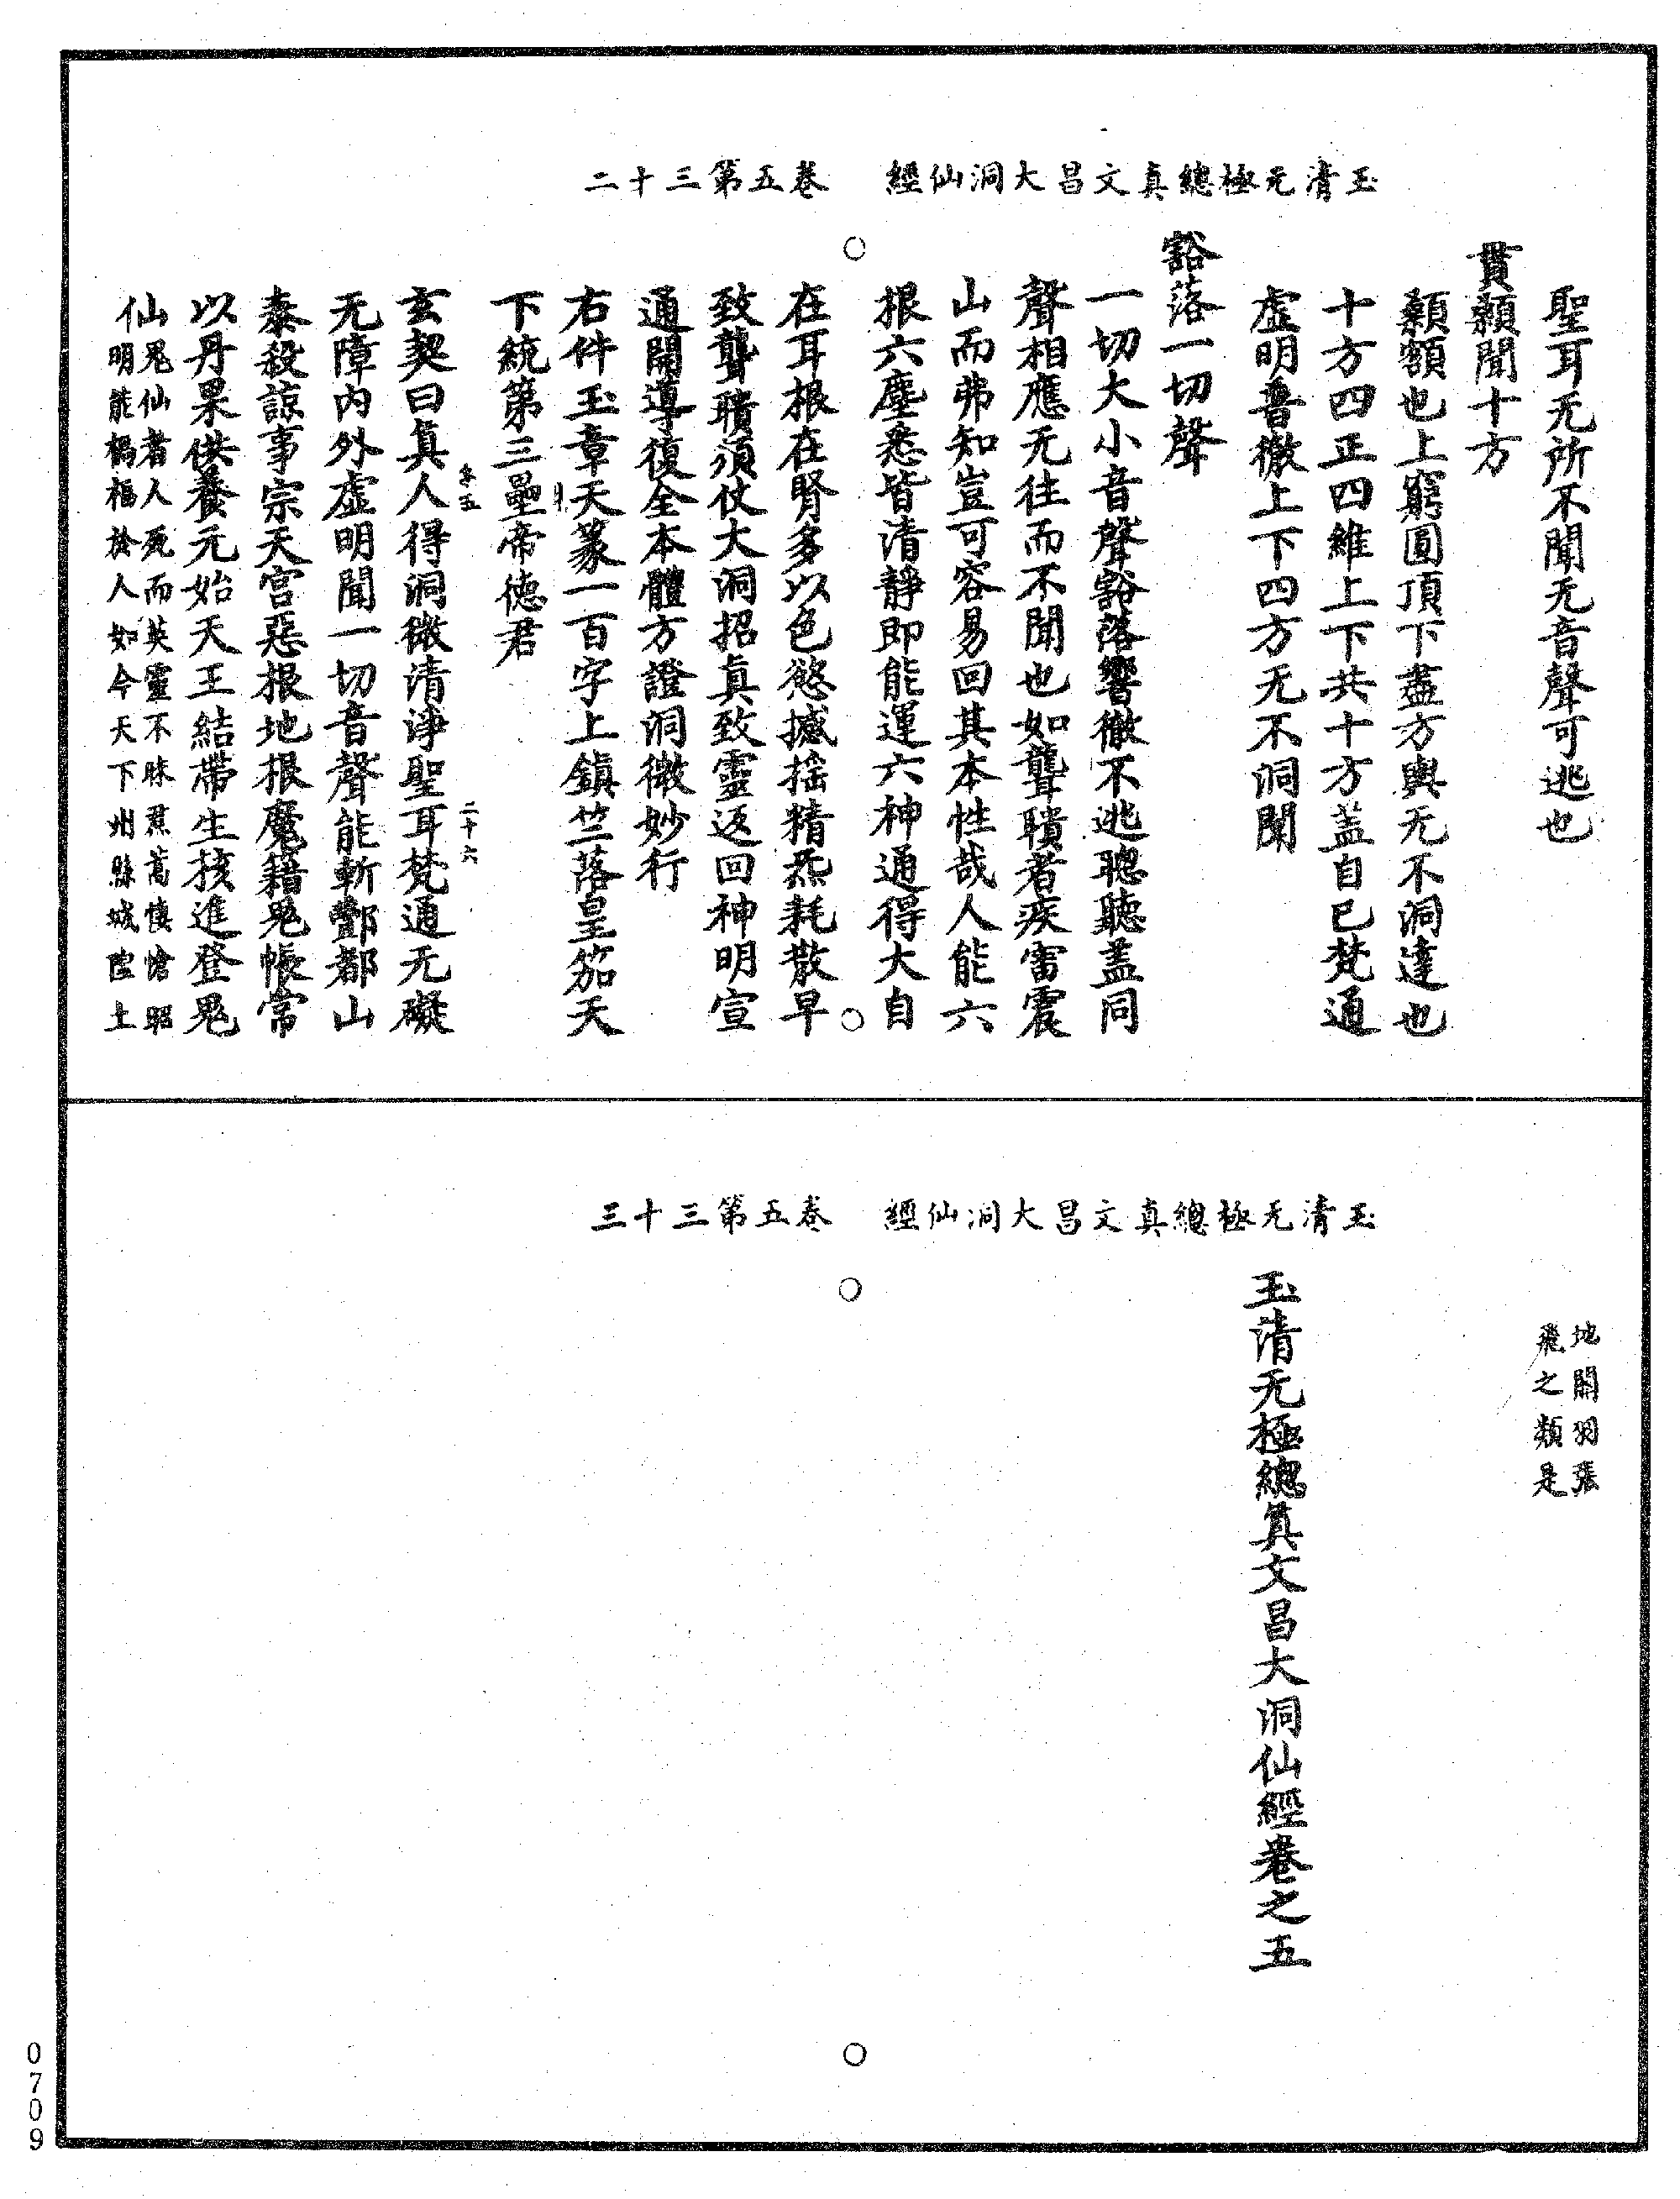 玉清无極總真文昌大洞仙經　卷五第三十二
聖耳无所不聞无音聲可逃也
貫顙聞十方
顙額也上窮圓頂下盡方輿无不洞達也
十方四正四維上下共十方蓋自已梵通
虛明普徹上下四方无不洞聞
豁落一切聲
一切大小音聲豁落響徹不逃聰聽蓋同
聲相應无往而不聞也如聾聵者疾雷震
山而弗知豈可容易回其本性哉人能六
根六塵悉皆清靜即能運六神通得大自
在耳根在腎多以色慾撼搖精炁耗散早
致聾聵須仗大洞招真致靈返回神明宣
通開導復全本體方證洞微妙行
右件玉章天篆一百字上鎮竺落皇笳天
下統第三壘帝德君
二十六
玄契曰真人得洞微清淨聖耳梵通无礙
无障內外虛明聞一切音聲能斬酆都山
泰殺諒事宗天宮惡根地根魔籍鬼帳常
以丹果供養元始天王結帶生核進登鬼
仙鬼仙者人死而英靈不昧焄蒿悽愴昭
明能禍福於人如今天下州縣城隍土
玉清无極總真文昌大洞仙經　卷五第三十三
地關羽張
飛之類是
玉清无極總真文昌大洞仙經卷之五
0709